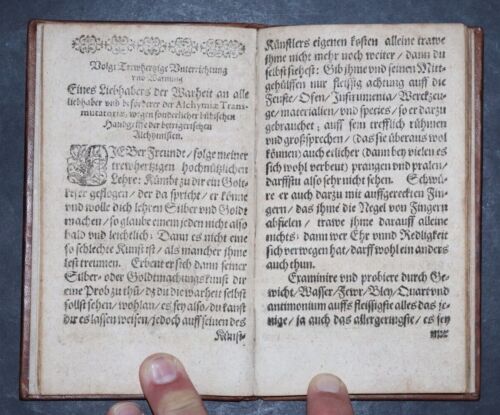 Volgt Trewhertzige Vnterrichtung
vnd Warnung
Eines Liebhabers der Warheit an alle
liebhaber vnd beförderer der Alchymiæ Trans-
mutatoriæ, wegen sonderlicher bübischen
Handgriffe der betriegerischen
Alchymisten.
LIEBer Freunde / folge meiner
trewhertzigen hochnützlichen
Lehre: Kümbt zu dir ein Golt-
kefer geflogen / der da spricht / er köne
vnd wolle dich lehren Silber vnd Goldt
machen / so glaube einem jeden nicht also
bald vnd leichtlich: Dann es nicht eine
so schlechte Kunst ist / als mancher ihme
lest treumen. Erbeut er sich dann seiner
Silber- oder Goldtmachungskunst dir
eine Prob zu thū / dz du die warheit selbst
sollst sehen / wohlan / es sey also / du kanst
dir es lassen weisen / jedoch auff seinen des
Künst-
Künstlers eigenen kosten alleine trawe
ihme nicht mehr noch weiter / dann du
selbst siehest: Gib ihme vnd seinen Mitt-
gehülffen nur fleissig achtung auff die
Feuste / Ofen / Instrumenta / Werckzeu-
ge / materialien / vnd species / so er darzu
gebrauchet: auff sein trefflich rühmen
vnd großsprechen / (das sie überaus wol
können / auch etlicher (dann bey vielen es
sich wohl verbeut) prangen vnd pralen /
darffstu also sehr nicht sehen. Schwü-
re er auch darzu mit auffgereckten Fin-
gern / das ihme die Negel von Fingern
abfielen / trawe ihme darauff alleine
nichts: dann wer Ehr vnd Redligkeit
sich verwegen hat / darff wohl ein anders
auch thun.
Examinire vnd probiere durch Ge-
wicht / Wasser / Fewr / Bley / Quart vnd
antimonium auffs fleissigste alles das je-
nige / ja auch das allergeringste / es sey